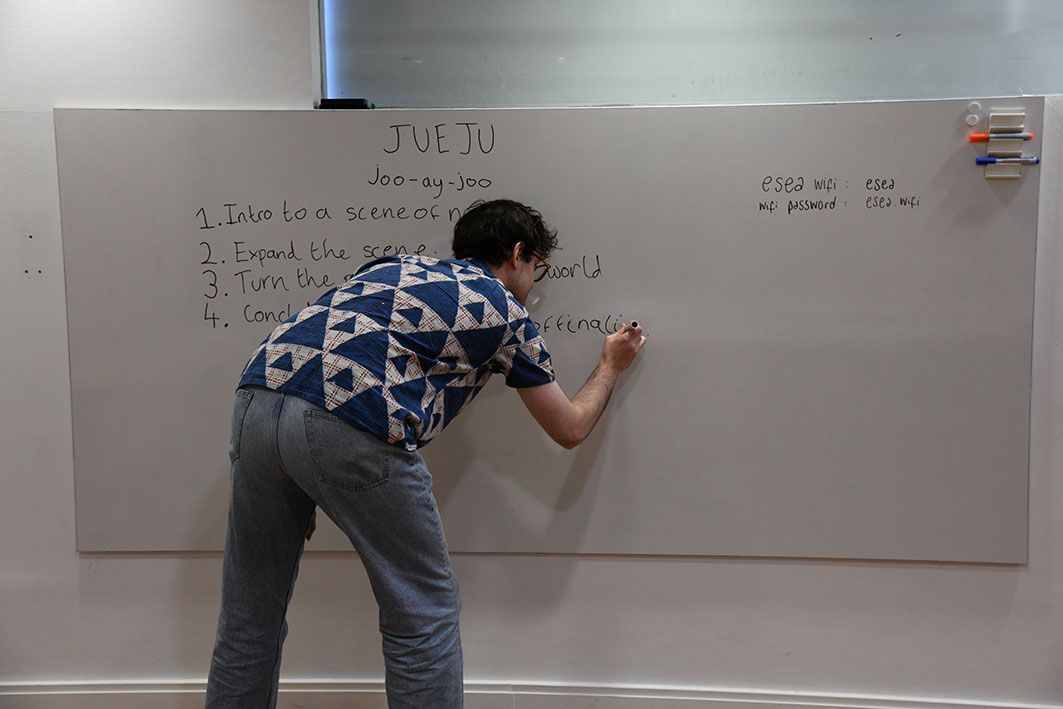 JUEJU
joo-ay-joo
1. Intro to a scene of
2. Expand the scene.
3. Turn the world
4.
esea wifi : esea
wifi password : esea wifi